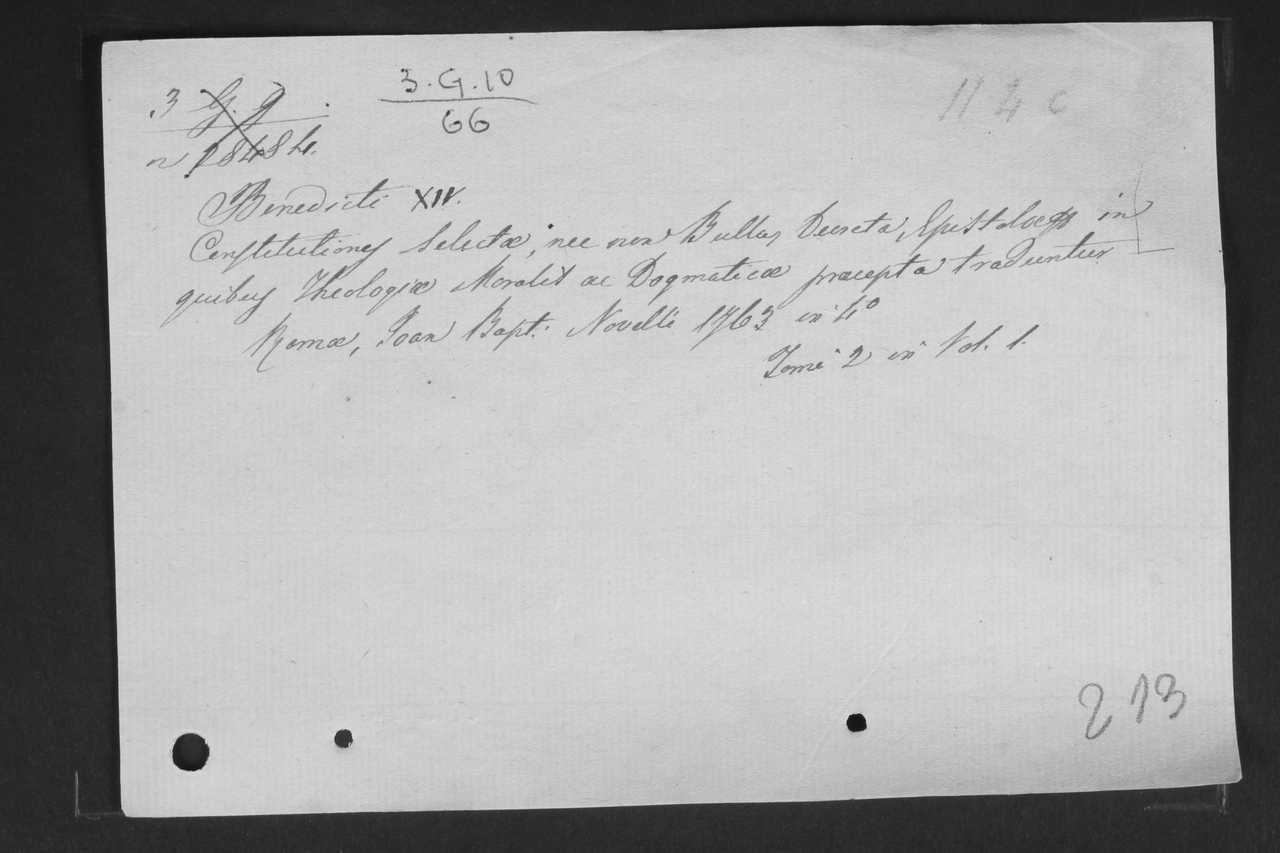 3. G. 9
n 18484.
3.G.10
66
114c
Benedicti XIV.
Constitutiones Selectæ, nec non Bullæ, Decreta, Epistolæ in
quibus Theologiæ Moralis ac Dogmaticæ præcepta traduntur
Romæ, Joan Bapt. Novelli 1763 in 4º
Tomi 2 in Vol. 1.
213